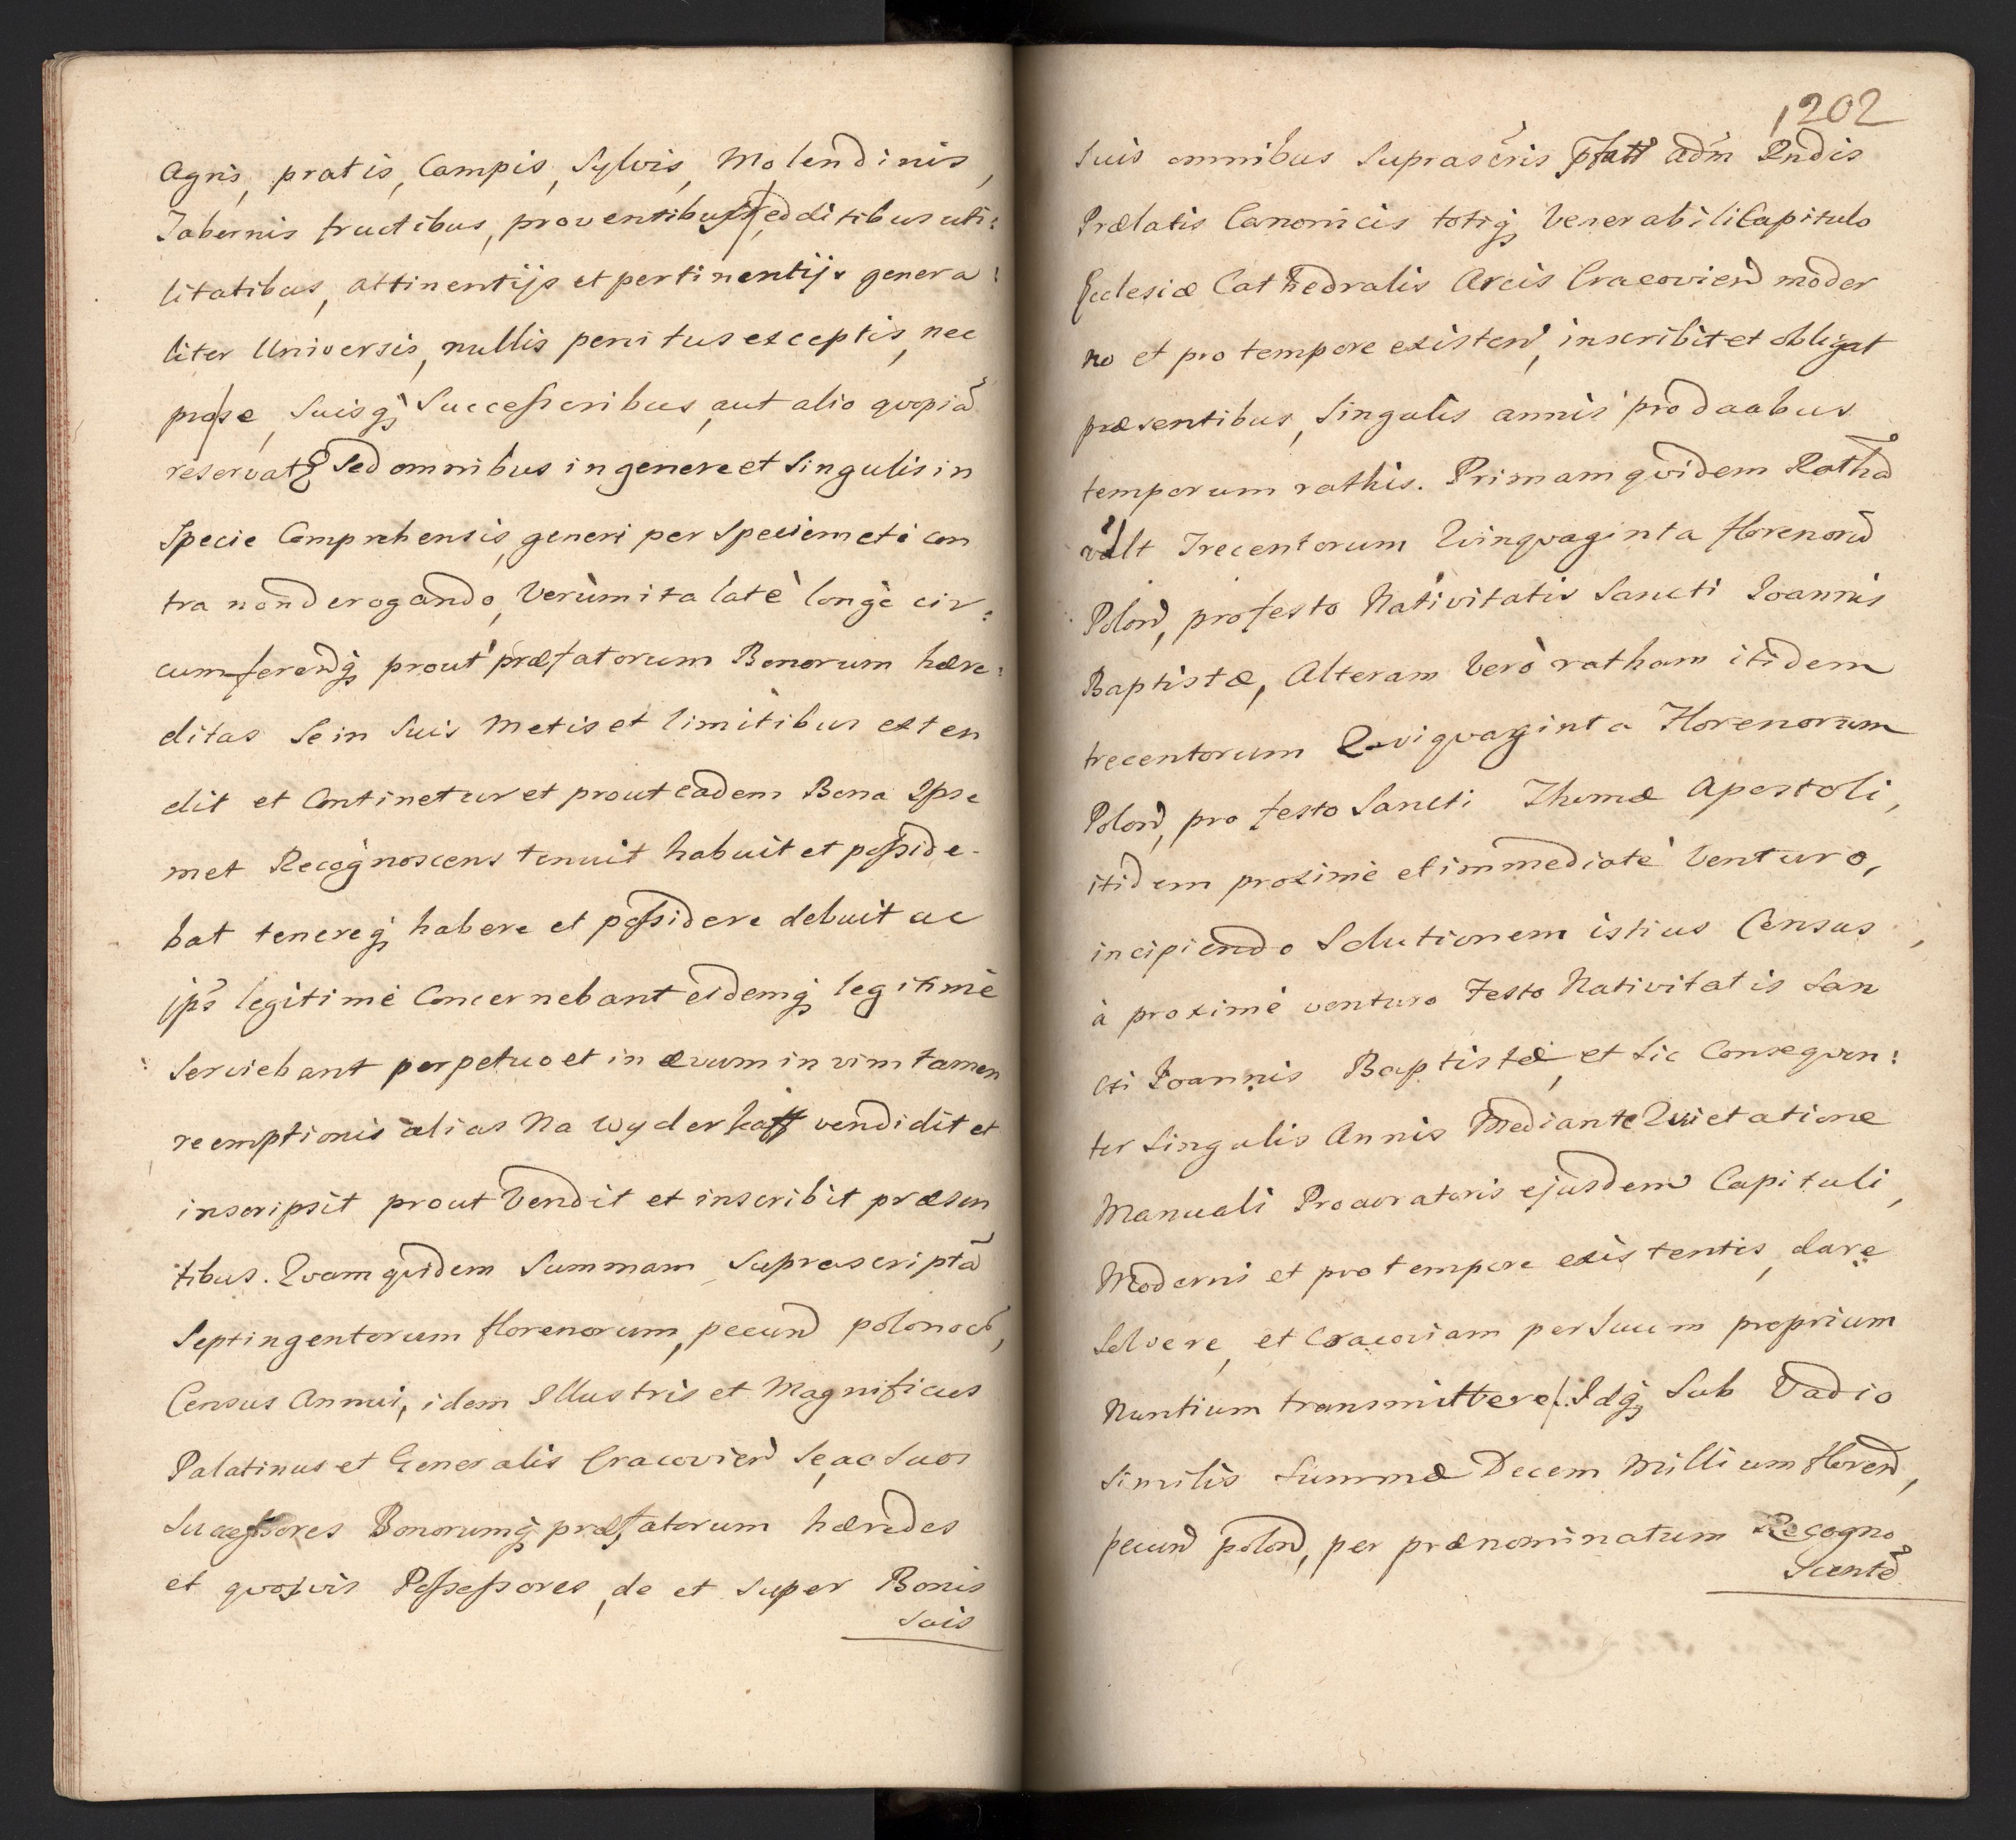 Agris, pratis, Campis, Sylvis, Molendinis,
Tabernis fructibus, proventibus, redditibus uti:
litatibus, attinentijs et pertinentijs genera:
liter Universis, nullis penitus exceptis, nec
pro se, Suisq; Successoribus, aut alio quopiã
reservat Sed omnibus in genere et Singulis in
Specie Comprehensis, generi per Speciem et è con
tra non derogando, Verùm ita latè longè cir:
cumferend̃q; prout præfatorum Bonorum hære:
ditas Se in Suis Metis et limitibus exten
dit et Continetur et prout eadem Bona Ipse
met Recognoscens tenuit habuit et posside-
bat tenereq; habere et possidere debuit ac
ips̃ legitimè Concernebant eidemq; legitimè
Serviebant perpetuo et in ævum in vim tamen
reemptionis alias Na Wyderkaff vendidit et
inscripsit prout Vendit et inscribit præsen
tibus. Quam quidem Summam Suprascriptã
Septingentorum florenorum, pecund polonoc̃,
Census Annui, idem Illustris et Magnificus
Palatinus et Generalis Cracovien̄ Se, ac Suos
Successores Bonorumq; præfatorum hæredes
et quosvis Possessores, de et Super Bonis
Suis
1202
Suis omnibus Suprascr̃is pfatt adm̃ Rndis
Prælatis Canonicis totiq; Venerabili Capitulo
Ecclesiæ Cathedralis Arcis Cracovien̄ moder
no et pro tempore existen̄, inscribit et obligat
præsentibus, Singulis annis pro duabus
temporum rathis. Primam quidem Rathã
vdlt Trecentorum Quinquaginta florenorũ
Polon̄, pro festo Nativitatis Sancti Joannis
Baptistæ, Alteram Verò ratham itidem
trecentorum Quiquaginta Florenorum
Polon̄, pro festo Sancti Thomæ Apostoli,
itidem proximè et immediatè Venturo,
incipiendo Solutionem istius Census,
à proximè venturo Festo Nativitatis San
cti Joannis Baptistæ, et Sic Consequen:
ter Singulis Annis Mediante Quietatione
Manuali Procuratoris ejusdem Capituli,
Moderni et pro tempore existentis, dare
Solvere, et Cracoviam per Suum proprium
Nuntium transmittere. Idq; Sub Vadio
Similis Summæ Decem Millium floren̄,
pecun̄ polon̄, per prænominatum Recogno
Scentẽ